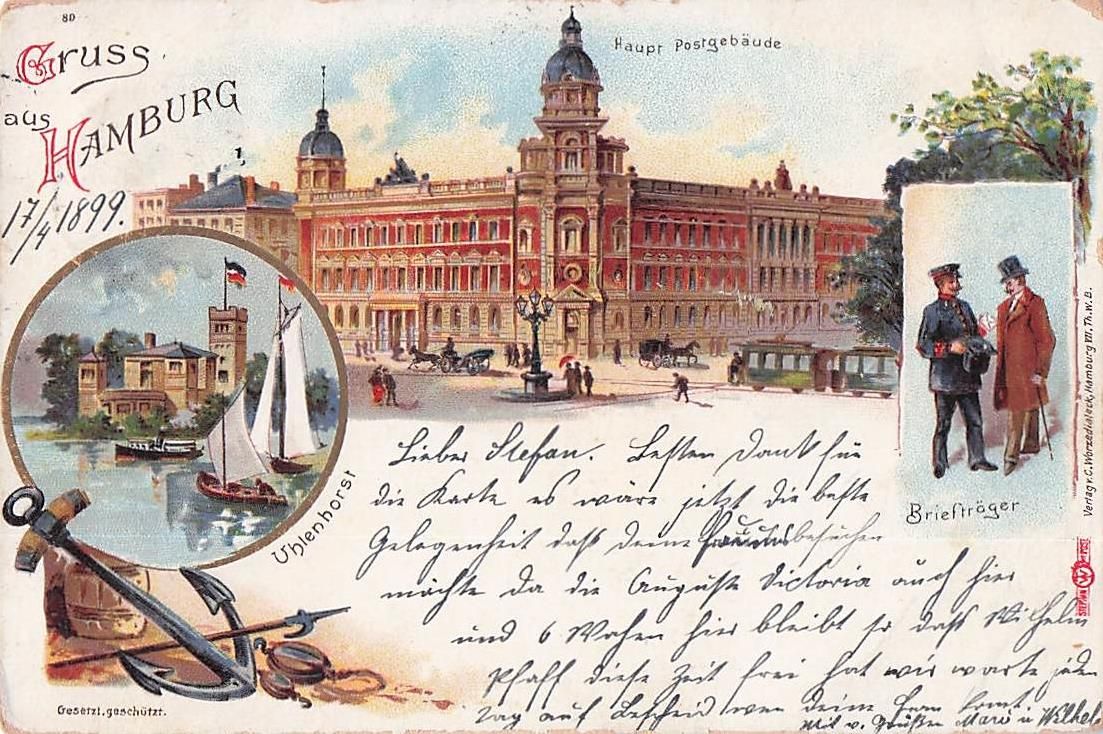 80
Gruss
aus
HAMBURG
17/4 1899.
Haupt Postgebäude
Uhlenhorst
Briefträger
Verlag v. C. Worzedialeck, Hamburg VII. Th. W. B.
Gesetzl. geschützt.
Lieber Stefan. Besten Dank für
die Karte es wäre jetzt die beste
Gelegenheit daß deine uns besuchen
möchte da die Auguste Victoria auch hier
und 6 Wochen hier bleibt so daß Wilhelm
Pfaff diese Zeit frei hat wir warte jeden
Tag auf Bescheid wen deine Frau komt.
Mit v. Grüßen Marie u Wilhel